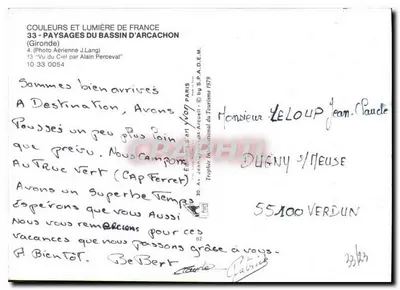 COULEURS ET LUMIÈRE DE FRANCE
33 - PAYSAGES DU BASSIN D'ARCACHON
(Gironde)
4. (Photo Aérienne J. Lang)
13 "Vu du Ciel par Alain Perceval"
10 33 0054
Sommes bien arrivés
A Destination, Avons
Poussés un peu plus loin
que prévu. Nous Campons
Au Truc Vert (Cap Ferret)
Avons un Superbe Temps
Espérons que vous Aussi
Nous vous remercions pour ces
vacances que nous passons grâce à vous.
A Bientôt. BeBert
Patrick
Trophée International du Tourisme 1979
Monsieur LELOUP Jean-Claude
DUGNY s/MEUSE
55100 VERDUN